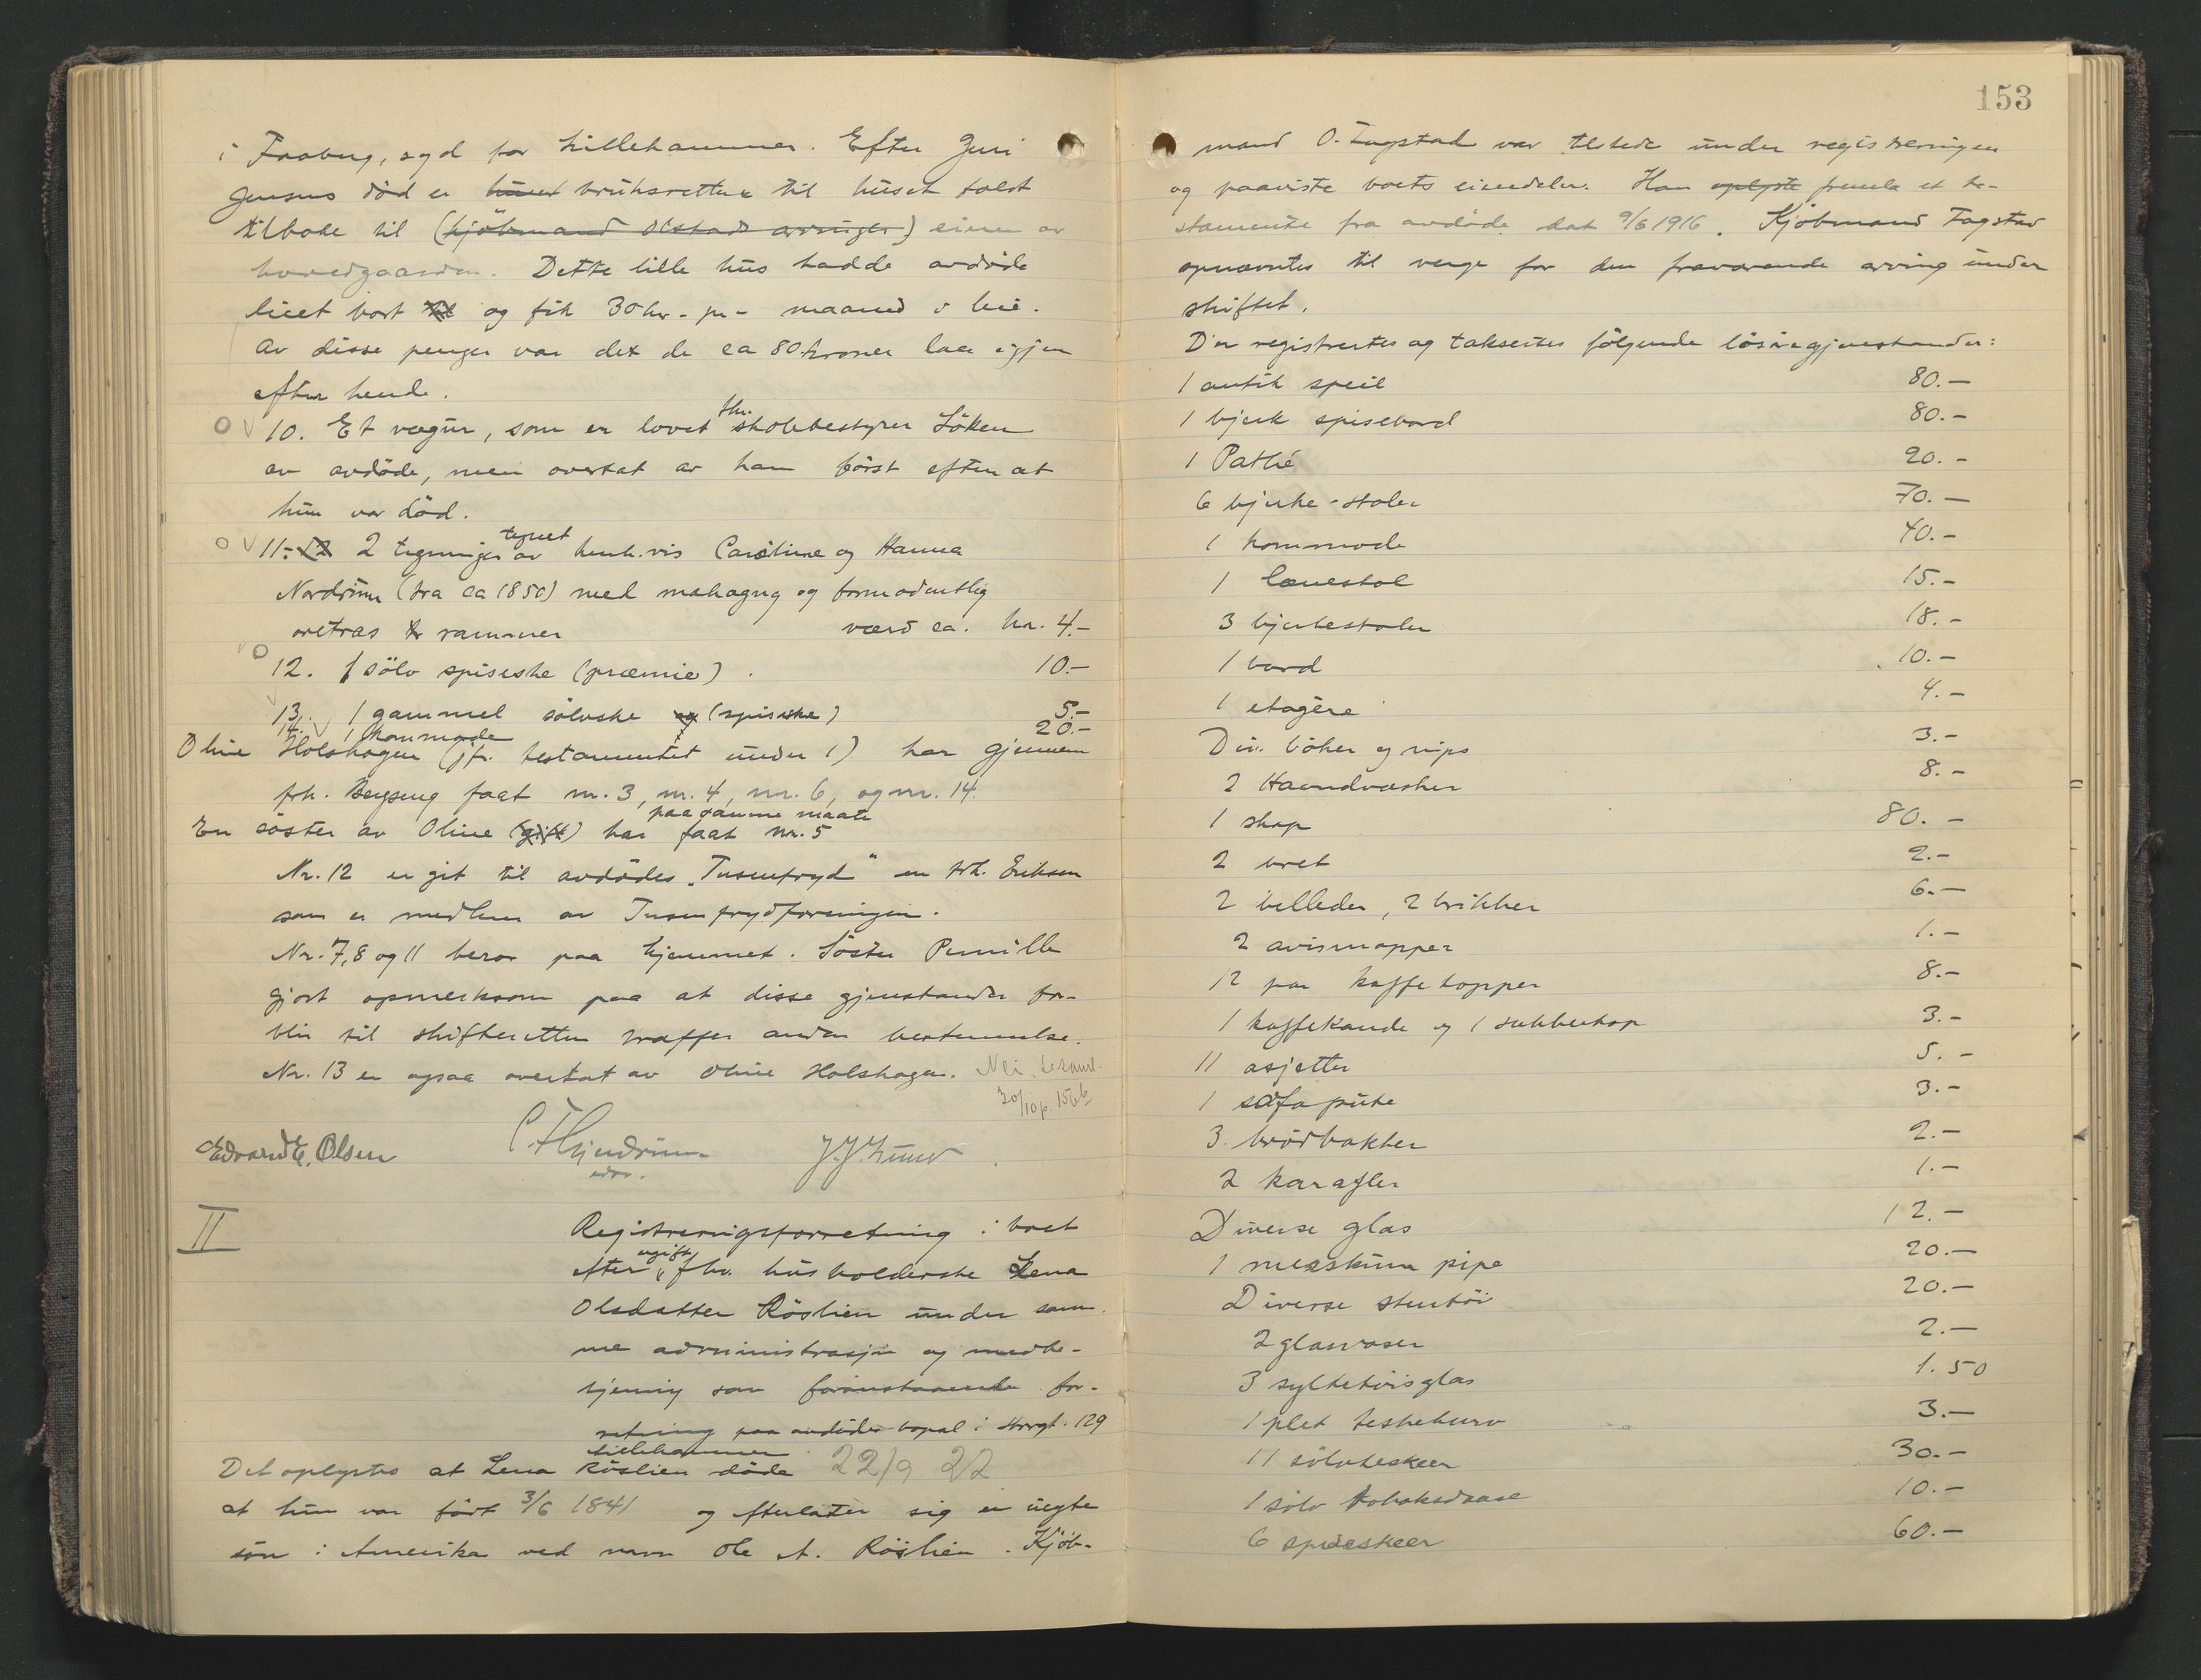 i Faaberg, syd for Lillehammer. Efter Guri
Jensens död er huset bruksretten til huset faldt
tilbake til (kjöbmand Olstads arvinger) eieren av
hovedgaarden. Dette lille hus hadde avdöde
leiet bort til og fik 30 kr. pr. maaned i leie.
Av disse penger var det de ca 80 kroner laa igjen
efter hende.
10. Et vægur, som er lovet fhv. skolebestyrer Löken
av avdöde, men overtat av ham först efter at
hun var död.
11. 12 2 tegninger tegnet av henh.vis Caroline og Hanna
Nordrum (fra ca 1850) med mahogny og formodentlig
oretræs rammer værd ca. kr. 4.-
12. 1 sölv spiseske (præmie) 10.-
13. 1 gammel sölvske og (spiseske) 5.-
14. 1 kommode 20.-
Oline Holshagen (jfr. testamentet under 1) har gjennem
frk. Bergseng faat nr. 3, nr. 4, nr. 6, og nr. 14.
En söster av Oline (gift) har paa samme maate faat nr. 5
Nr. 12 er git til avdödes "Tusenfryd" en frk. Eriksen
som er medlem av Tusenfrydforeningen.
Nr. 7, 8 og 11 beror paa hjemmet. Söster Pernille
gjort opmerksom paa at disse gjenstander for-
blir til skifteretten træffer anden bestemmelse.
Nr. 13 er ogsaa overtat av Oline Holshagen. Nei,
30/10 p. 156 b
Edvard E. Olsen
J. J. Lund
II
Registreringsforretning i boet
efter ugift fhv. husholderske Lena
Olsdatter Röslien under sam-
me administrasjon og medbe-
tjening som foranstaaende for-
retning paa avdödes bopæl i Storgt. 129
Lillehammer
Det oplystes at Lena Röslien döde 22/9 22
at hun var födt 3/6 1841 og efterlater sig en uegte
sön i Amerika ved navn Ole A. Röslien. Kjöb-
153
mand O. Fagstad var tilstede under registreringen
og paaviste boets eiendeler. Han oplyste fremla et te-
stamente fra avdöde dat 9/6 1916. Kjöbmand Fagstad
opnævntes til verge for den fraværende arving under
skiftet.
Der registrertes og taksertes fölgende lösöregjenstander:
1 antik speil 80.-
1 bjerk spisebord 80.-
1 Pathé 20.-
6 bjerke-stoler 70.-
1 kommode 40.-
1 lænestol 15.-
3 bjerkestoler 18.-
1 bord 10.-
1 etagère 4.-
Div. böker og nips 3.-
2 Haandvæsker 8.-
1 skap 80.-
2 bret 2.-
2 billeder, 2 brikker 6.-
2 avismapper 1.-
12 par kaffekopper 8.-
1 kaffekande og 1 sukkerkop 3.-
11 asjetter 5.-
1 sofapute 3.-
3 brödbakker 2.-
2 karafler 1.-
Diverse glas 12.-
1 merskum pipe 20.-
Diverse stentöi 20.-
2 glasvaser 2.-
3 syltetöisglas 1.50
1 plet teskekurv 3.-
11 sölvteskeer 30.-
1 sölv tobaksdaase 10.-
6 spiseskeer 60.-